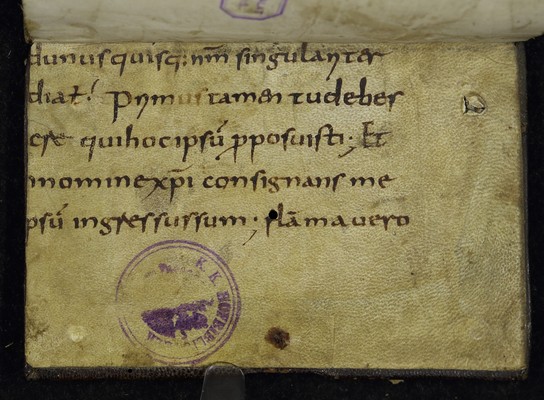 dunusquisq; nr̄m singulariter
diat! Primus tamen tu debes
ere qui hoc ipsū pposuisti; Et
nomine xp̄i consignans me
psū ingressus sum; flāma vero
K. K. HOFBIBL